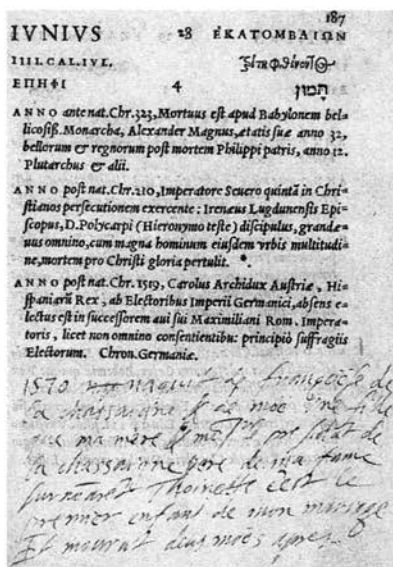 187
IVNIVS 28 ΕΚΑΤΟΜΒΑΙΩΝ
IIII. CAL. IVL. ἕκτη φθίνοντος
ΕΠΗΦΙ 4 תמוז
ANNO ante nat. Chr. 323, Mortuus est apud Babylonem bel=
licosiß. Monarcha, Alexander Magnus, ætatis suæ anno 32,
bellorum & regnorum post mortem Philippi patris, anno 12.
Plutarchus & alii.
ANNO post nat. Chr. 210, Imperatore Seuero quintā in Chri=
stianos persecutionem exercente: Irenæus Lugdunensis Epi=
scopus, D. Polycarpi (Hieronymo teste) discipulus, grandæ=
uus omnino, cum magna hominum eiusdem vrbis multitudi=
ne, mortem pro Christi gloria pertulit.
ANNO post nat. Chr. 1519, Carolus Archidux Austriæ, Hi=
spaniarū Rex, ab Electoribus Imperii Germanici, absens e=
lectus est in successorem aui sui Maximiliani Rom. Impera=
toris, licet non omnino consentientibu: principiò suffragiis
Electorum. Chron. Germaniæ.
1570 naquit de Françoise de
la chassaigne & de moi une fille
que ma mere & mr le presidat de
la chassaigne pere de ma fame
surnomaret Thoinette c'est le
premier enfant de mon mariage
Et mourut deus mois apres